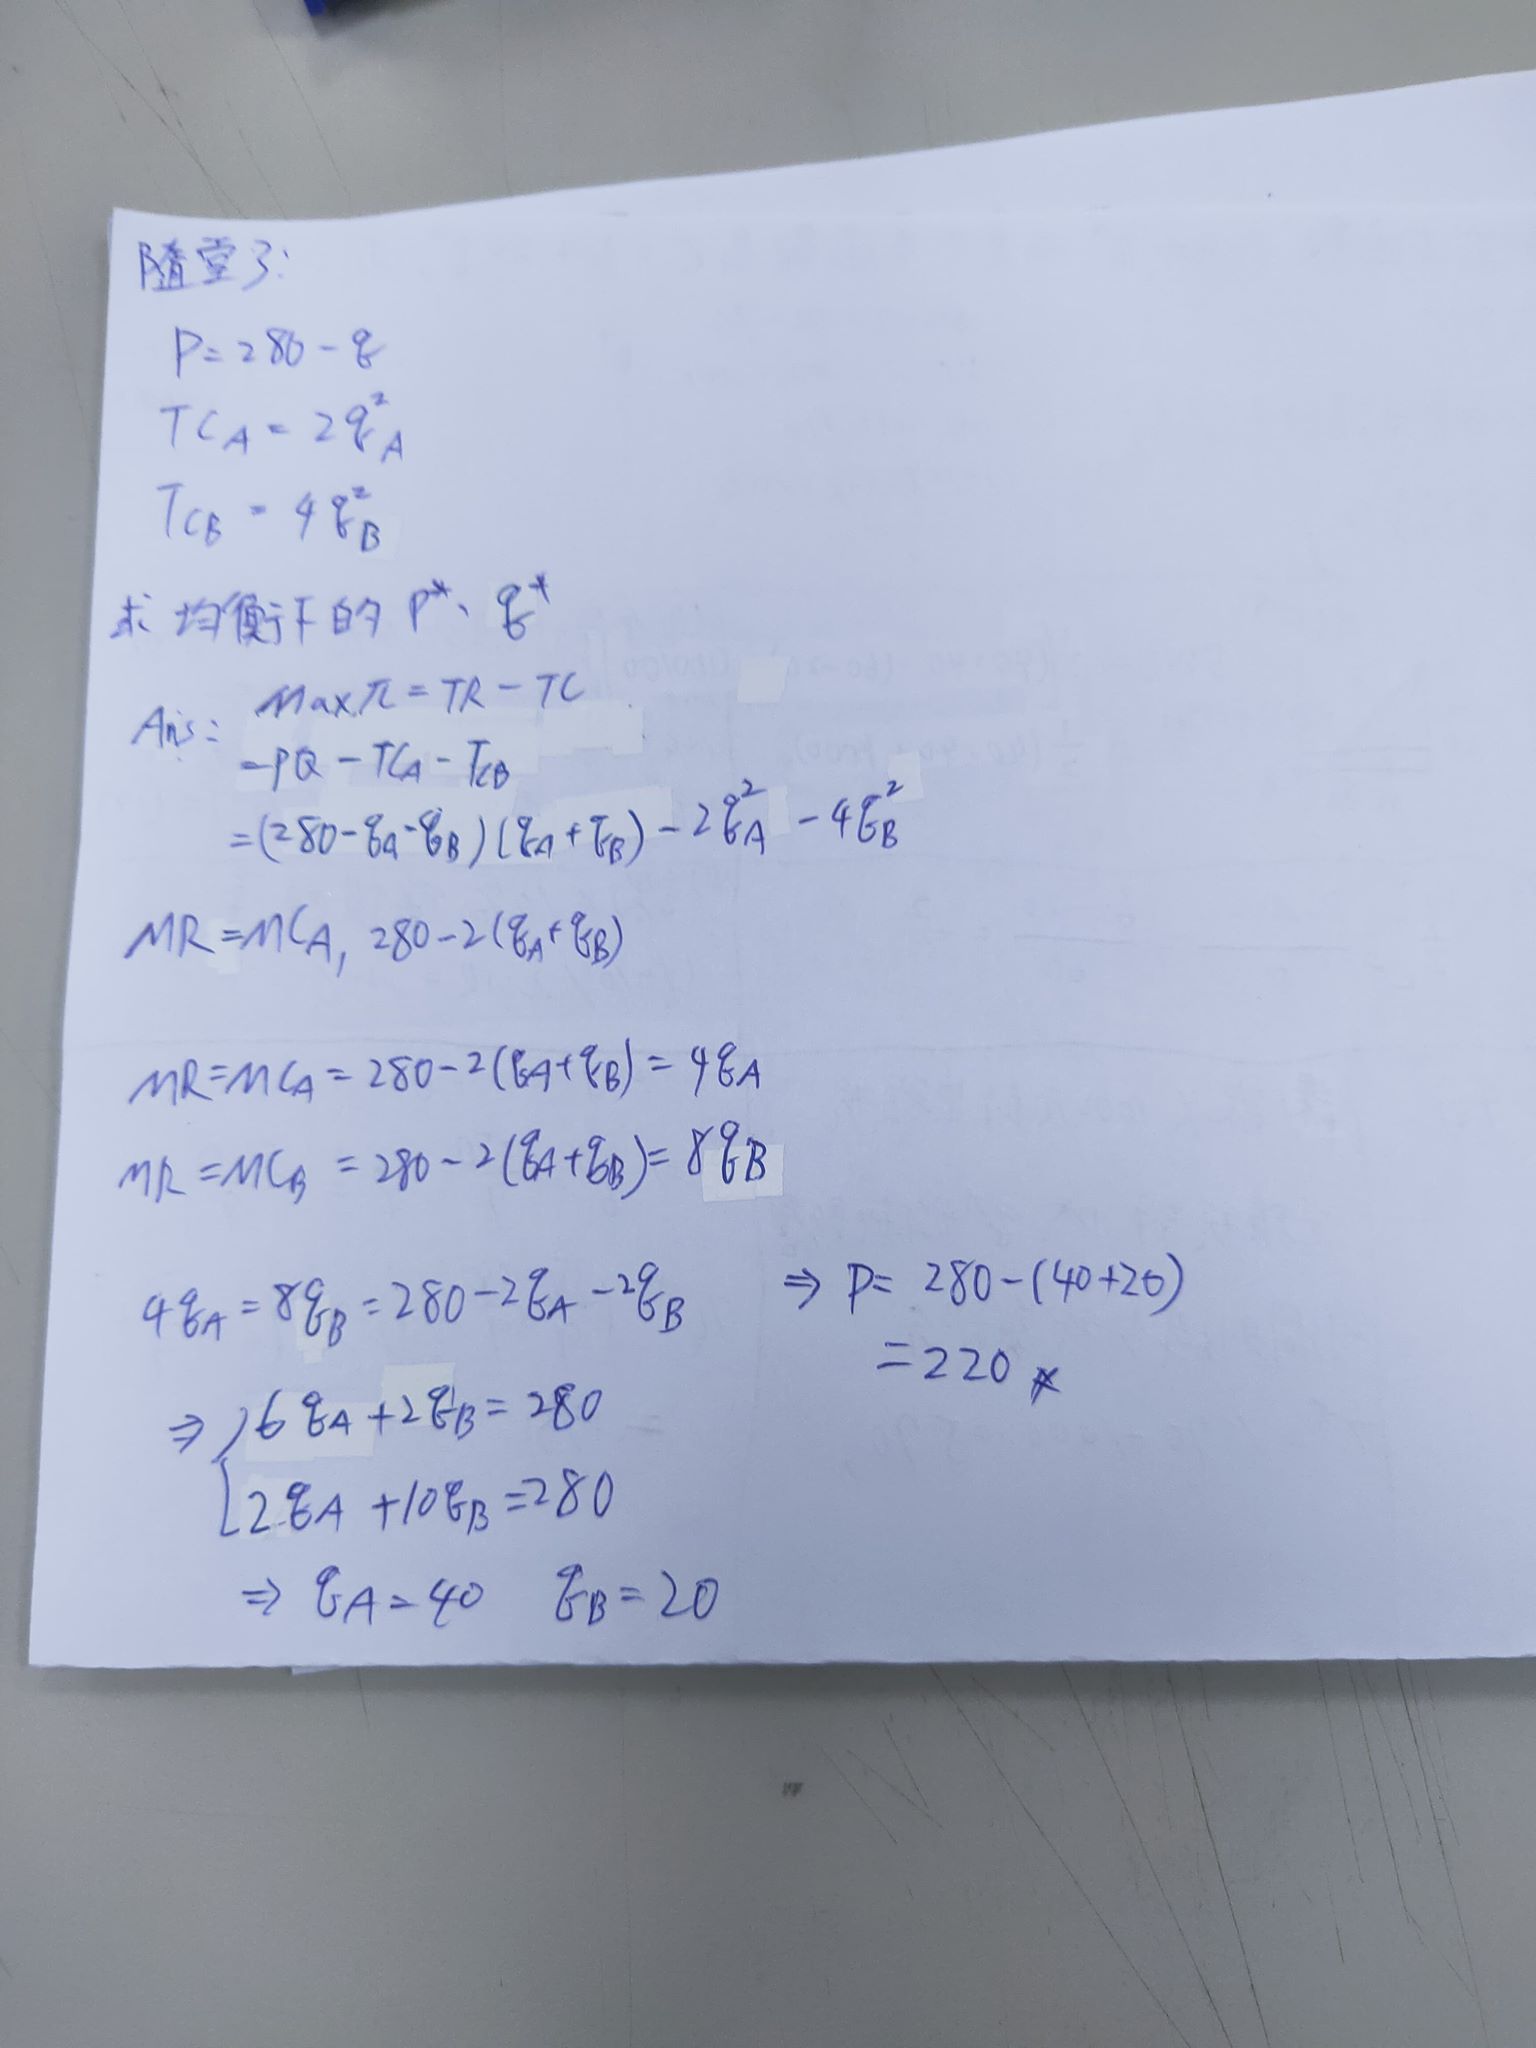 隨堂3:
P=280-q
TCA=2q²A
TCB=4q²B
求均衡下的 P*、q*
Ans: Max π=TR-TC
=PQ-TCA-TCB
=(280-qA-qB)(qA+qB)-2q²A-4q²B
MR=MCA, 280-2(qA+qB)
MR=MCA=280-2(qA+qB)=4qA
MR=MCB=280-2(qA+qB)=8qB
4qA=8qB=280-2qA-2qB
⇒{6qA+2qB=280
2qA+10qB=280
⇒qA=40 qB=20
⇒P=280-(40+20)
=220*